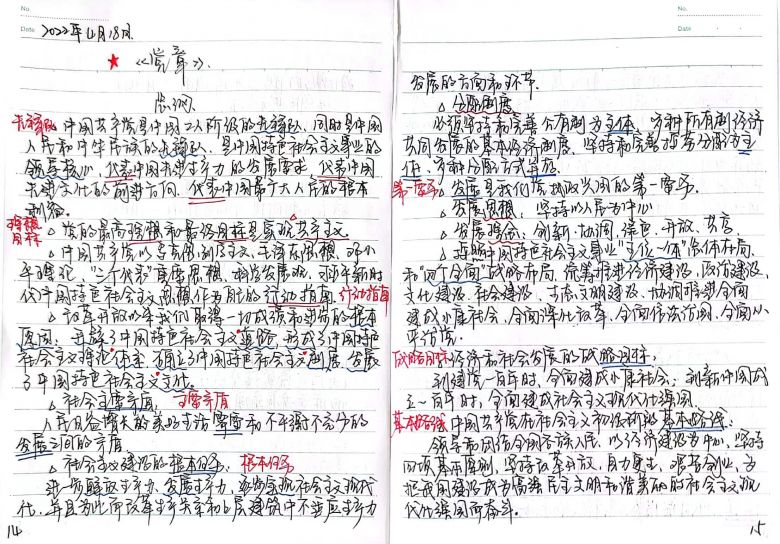 No.
Date 2022年4月18日
★ 《党章》
总纲
先锋队 中国共产党是中国工人阶级的先锋队，同时是中国
人民和中华民族的先锋队，是中国特色社会主义事业的
领导核心，代表中国先进生产力的发展要求，代表中国
先进文化的前进方向，代表中国最广大人民的根本
利益。
理想目标 △ 党的最高理想和最终目标是实现共产主义
△ 中国共产党以马克思列宁主义、毛泽东思想、邓小
平理论、"三个代表"重要思想、科学发展观、习近平新时
代中国特色社会主义思想作为自己的行动指南 行动指南
△ 改革开放以来我们取得一切成绩和进步的根本
原因：开辟了中国特色社会主义道路，形成了中国特色
社会主义理论体系，确立了中国特色社会主义制度，发展
了中国特色社会主义文化。
△ 社会主要矛盾： 主要矛盾
人民日益增长的美好生活需要和不平衡不充分的
发展之间的矛盾
△ 社会主义建设的根本任务： 根本任务
进一步解放生产力，发展生产力，逐步实现社会主义现代
化，并且为此而改革生产关系和上层建筑中不适应生产力
14
No.
Date
发展的方面和环节。
△ 分配制度
必须坚持和完善公有制为主体、多种所有制经济
共同发展的基本经济制度，坚持和完善按劳分配为主
体、多种分配方式并存
第一要务 △ 发展是我们党执政兴国的第一要务
△ 发展思想：坚持以人民为中心
△ 发展理念：创新、协调、绿色、开放、共享
△ 按照中国特色社会主义事业"五位一体"总体布局
和"四个全面"战略布局，统筹推进经济建设、政治建设、
文化建设、社会建设、生态文明建设，协调推进全面
建成小康社会、全面深化改革、全面依法治国、全面从
严治党。
战略目标 经济和社会发展的战略目标：
到建党一百年时，全面建成小康社会；到新中国成
立一百年时，全面建成社会主义现代化强国。
基本路线 中国共产党在社会主义初级阶段的基本路线：
领导和团结全国各族人民，以经济建设为中心，坚持
四项基本原则，坚持改革开放，自力更生，艰苦创业，为
把我国建设成为富强民主文明和谐美丽的社会主义现
代化强国而奋斗。
15